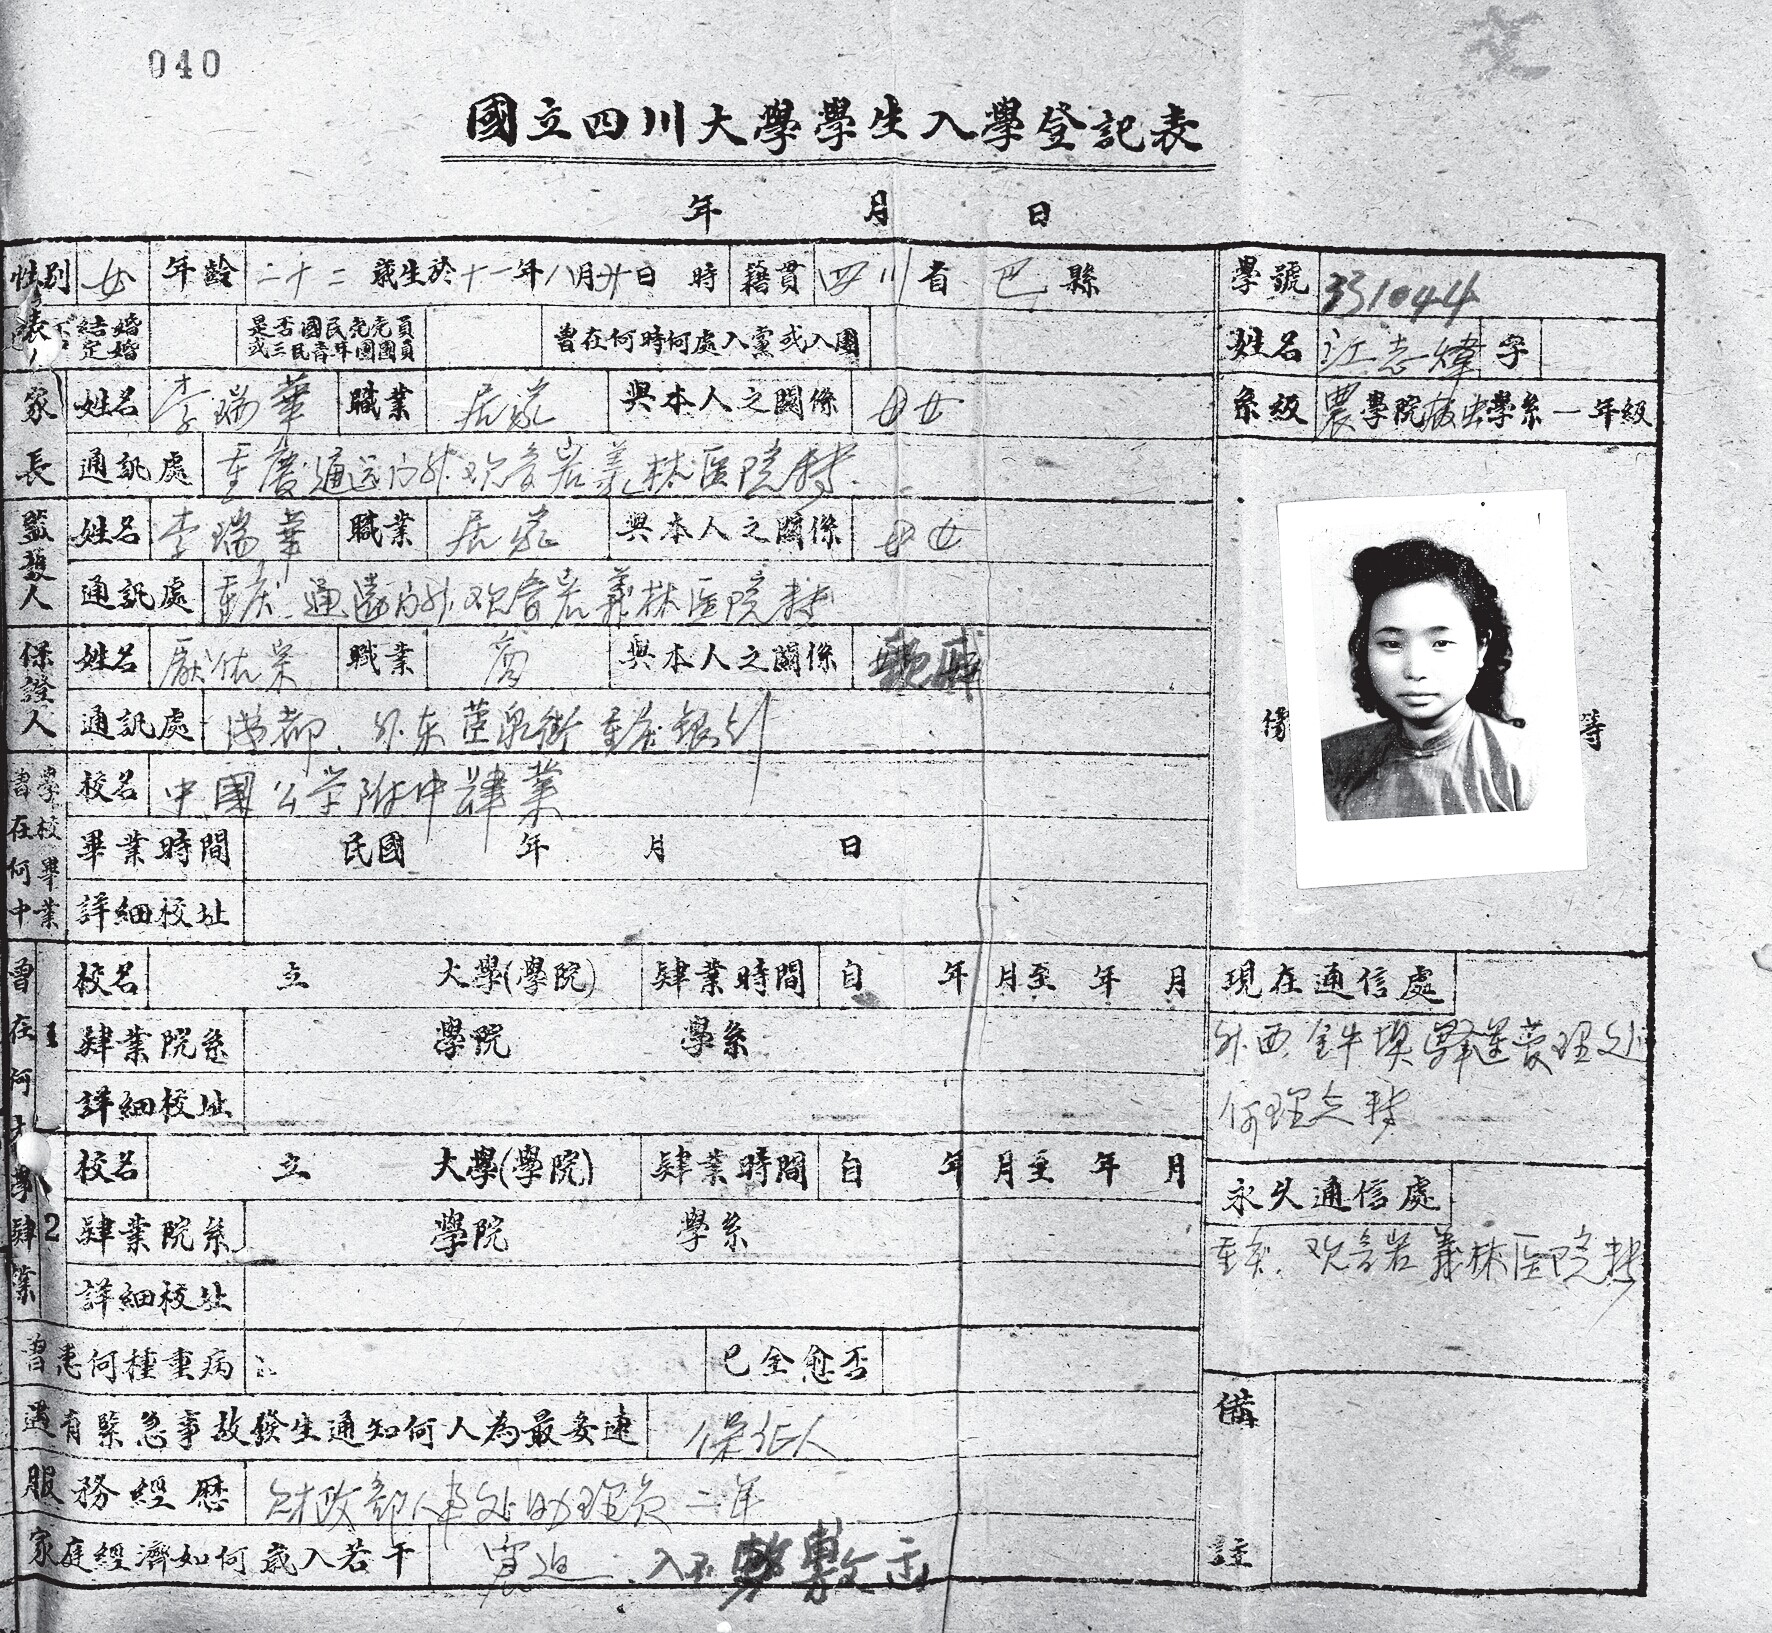 040
國立四川大學學生入學登記表
年 月 日
性別 女 年齡 二十二 歲生於十一年八月廿日 時 籍貫 四川省 巴縣
結婚 定婚 是否國民党党員或三民青年團團員 曾在何時何處入黨或入團
家長 姓名 李瑞華 職業 居家 與本人之關係 母女
通訊處 重慶通远门外观音岩義林医院轉
監護人 姓名 李瑞華 職業 居家 與本人之關係 母女
通訊處 重庆通遠门外观音岩義林医院轉
保證人 姓名 職業 商 與本人之關係 親戚
通訊處 成都 外东 街重庆银行
曾在何中學校畢業 校名 中國公学附中肄業
畢業時間 民國 年 月 日
詳細校址
曾在何 學肄業 1 校名 立 大學(學院) 肄業時間 自 年 月至 年 月
肄業院系 學院 學系
詳細校址
2 校名 立 大學(學院) 肄業時間 自 年 月至 年 月
肄業院系 學院 學系
詳細校址
曾患何種重病 已全愈否
遇有緊急事故發生通知何人為最妥速 保证人
服務經歷 财政部人事处助理员 二年
家庭經濟如何歲入若干 窘迫 入不敷 支
學號 331044
姓名 江志煒 字
系級 農學院植虫學系一年級
備 等
現在通信處
外西 金牛壩驛運管理处
何理立轉
永久通信處
重庆 观音岩義林医院轉
備註